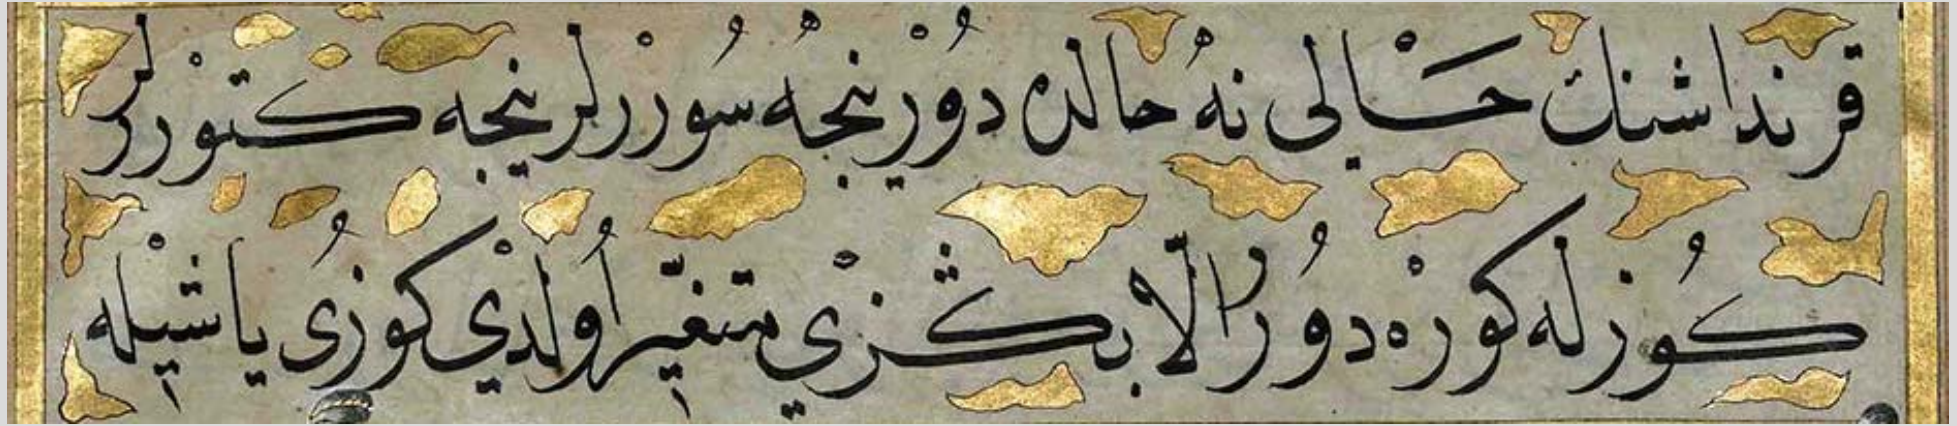 قرنداشنك حالى نه حالده دور نيجه سوررلر نيجه كتوررلر
كوزله كوره دور الّا بكزي متغيّر اولدي كوزى ياشيله